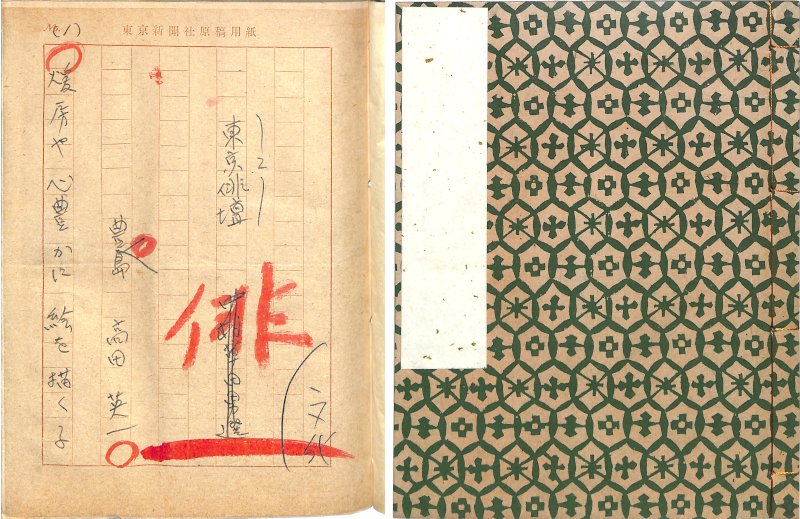 No. (1)
東京新聞社原稿用紙
(文化
俳
中村草田男選
東京俳壇
豊島 高田英一
暖房や心豊かに絵を描く子